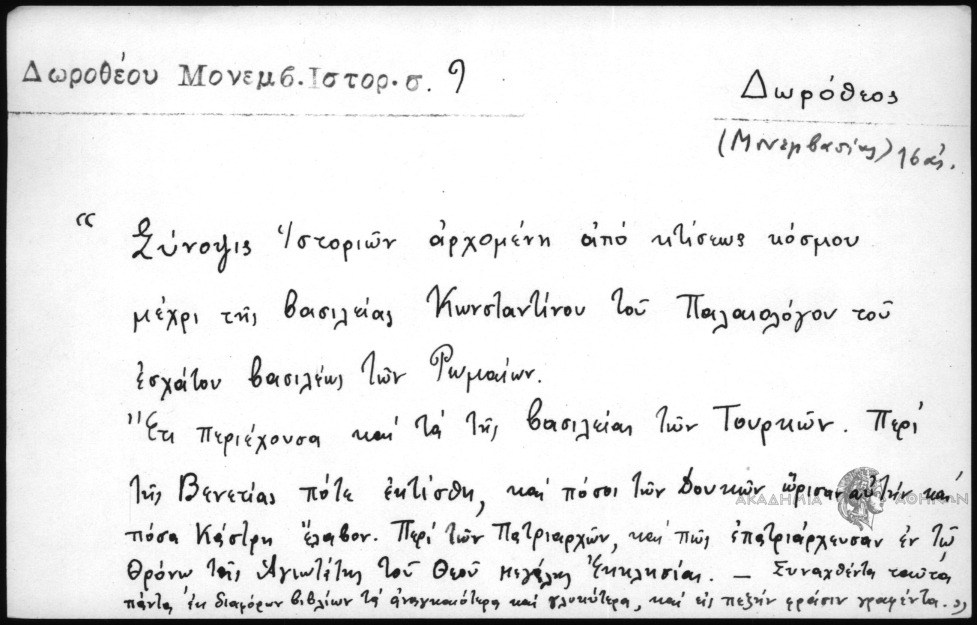 Δωροθέου Μονεμβ.Ιστορ.σ. 9
Δωρόθεος
(Μονεμβασίας) 16 αἰ.
“ Σύνοψις Ἱστοριῶν ἀρχομένη ἀπό κτίσεως κόσμου
μέχρι τῆς βασιλείας Κωνσταντίνου τοῦ Παλαιολόγου τοῦ
ἐσχάτου βασιλέως τῶν Ρωμαίων.
Ἔτι περιέχουσα καί τά τῆς βασιλείας τῶν Τουρκῶν. Περί
τῆς Βενετίας πότε ἐκτίσθη, καί πόσοι τῶν Δουκῶν ὥρισαν αὐτήν καί
πόσα Κάστρη ἔλαβον. Περί τῶν Πατριαρχῶν, καί πῶς ἐπατριάρχευσαν ἐν τῷ
Θρόνῳ τῆς Ἁγιωτάτης τοῦ Θεοῦ μεγάλης Ἐκκλησίας. — Συναχθέντα ταῦτα
πάντα ἐκ διαφόρων βιβλίων τά ἀναγκαιότερα καί γλυκύτερα, καί εἰς πεζήν φράσιν γραφέντα. „
ΑΚΑΔΗΜΙΑ ΑΘΗΝΩΝ